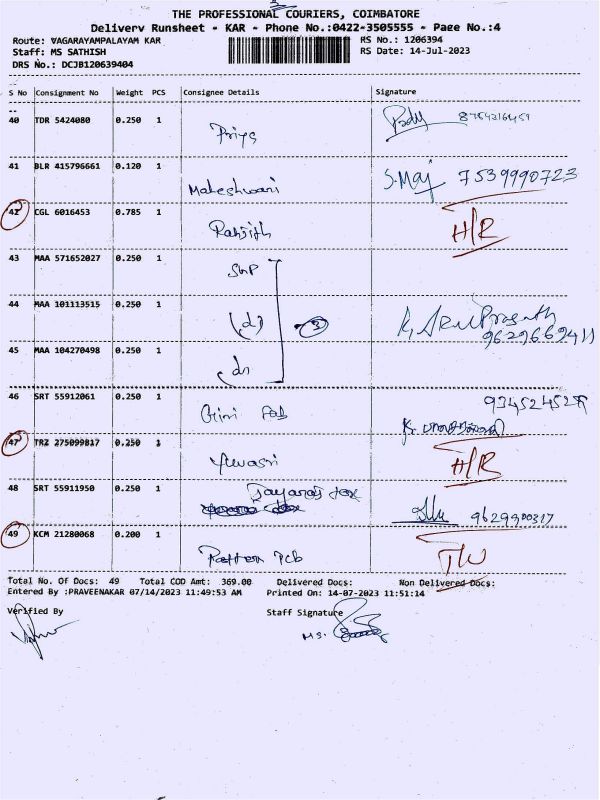 THE PROFESSIONAL COURIERS, COIMBATORE
Delivery Runsheet - KAR - Phone No.:0422-3505555 - Page No.:4
Route: VAGARAYAMPALAYAM KAR RS No.: 1206394
Staff: MS SATHISH RS Date: 14-Jul-2023
DRS No.: DCJB120639404
S No Consignment No Weight PCS Consignee Details Signature
40 TDR 5424080 0.250 1 Priya
41 BLR 415796661 0.120 1 Maheshwari S.Maj 7539990723
42 CGL 6016453 0.785 1 Ranjith H/R
43 MAA 571652027 0.250 1
44 MAA 101113515 0.250 1 (d) 3 K. Arul Prasath
9629669411
45 MAA 104270498 0.250 1
46 SRT 55912061 0.250 1
47 TRZ 275099817 0.250 1 Yuvasri H/R
48 SRT 55911950 0.250 1 Jayaraj tex 9629900317
49 KCM 21280068 0.200 1 Pattern pcb
Total No. Of Docs: 49 Total COD Amt: 369.00 Delivered Docs: Non Delivered Docs:
Entered By :PRAVEENAKAR 07/14/2023 11:49:53 AM Printed On: 14-07-2023 11:51:14
Verified By Staff Signature
MS.